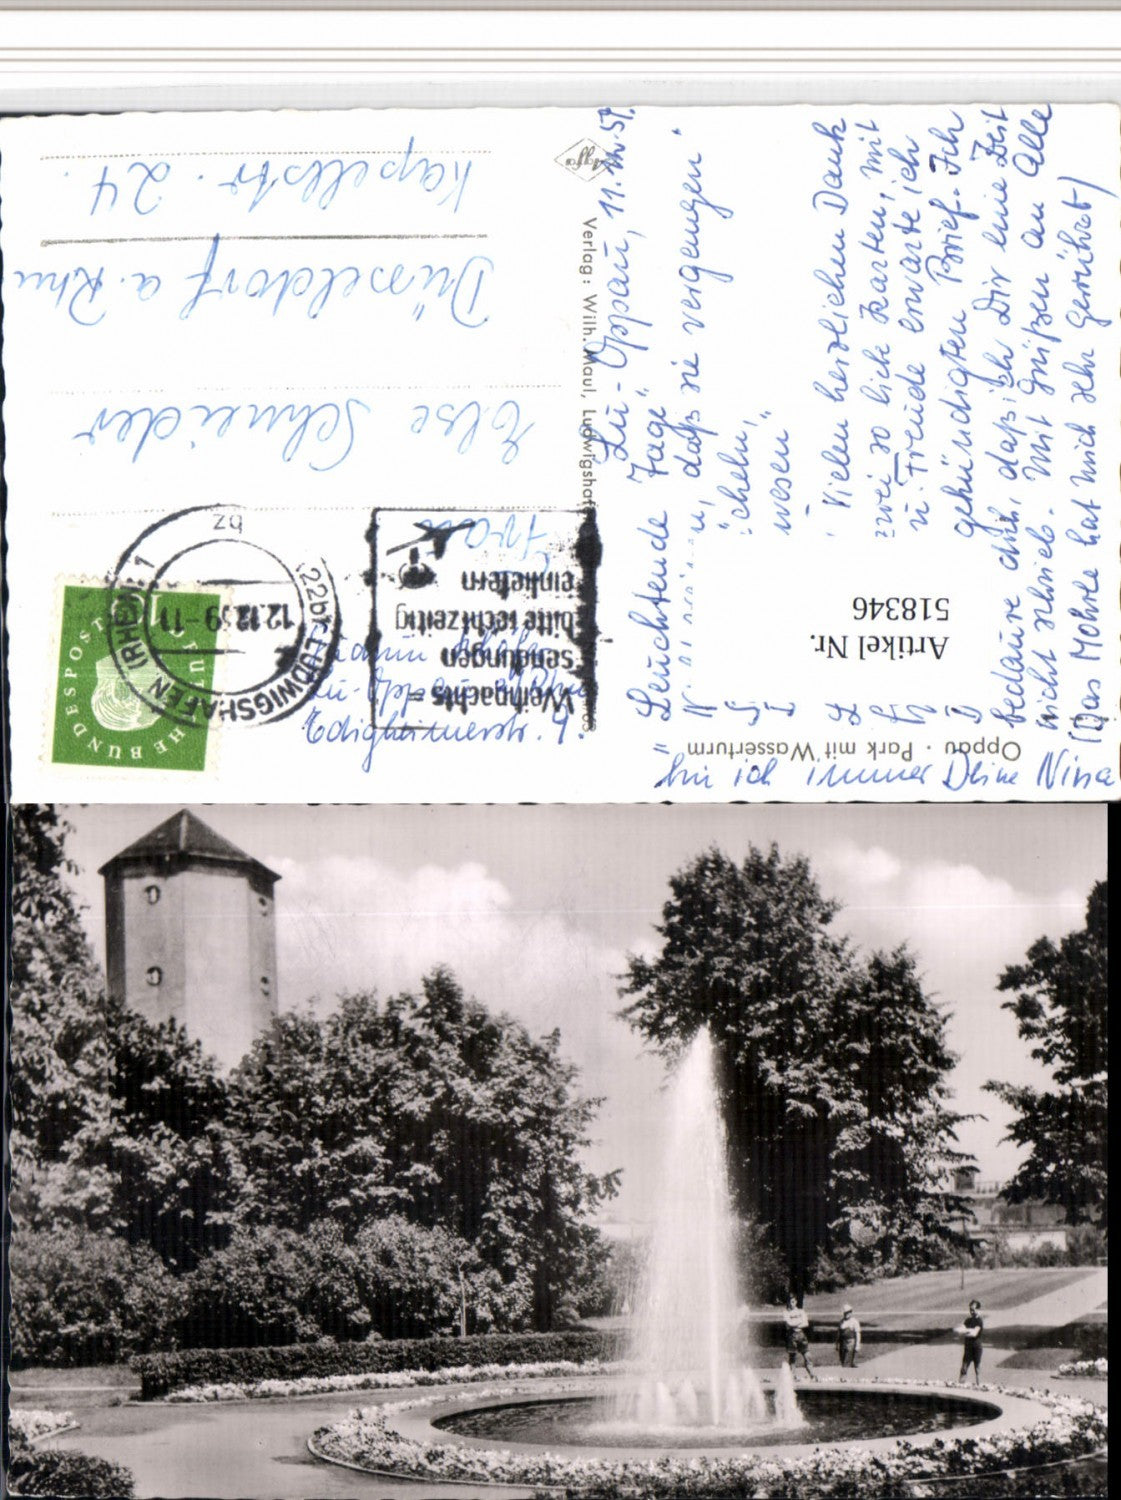 Lu-Oppau, 11.
"Leuchtende Tage"
daß sie vergangen"
wesen"
Vielen herzlichen Dank
zwei so lieb Karten, mit
u. Freude erwarte ich
gekündigten Brief. Ich
bedaure dich, daß ich Dir eine Zeit
nicht schrieb. Mit Grüßen an Alle
(Das Mohrle hat mich sehr gerührt)
bin ich immer Deine Nina
Oppau · Park mit Wasserturm
Verlag: Wilh. Maul, Ludwigshafen
Agfa
Artikel Nr.
518346
Edigheimerstr.
Weihnachts=
sendungen
bitte rechtzeitig
einliefern
22b LUDWIGSHAFEN (RHEIN) 1
12.12.59-11
bz
DEUTSCHE BUNDESPOST
Frau
Else Schneider
Düsseldorf a. Rhn
Kapellstr. 24.